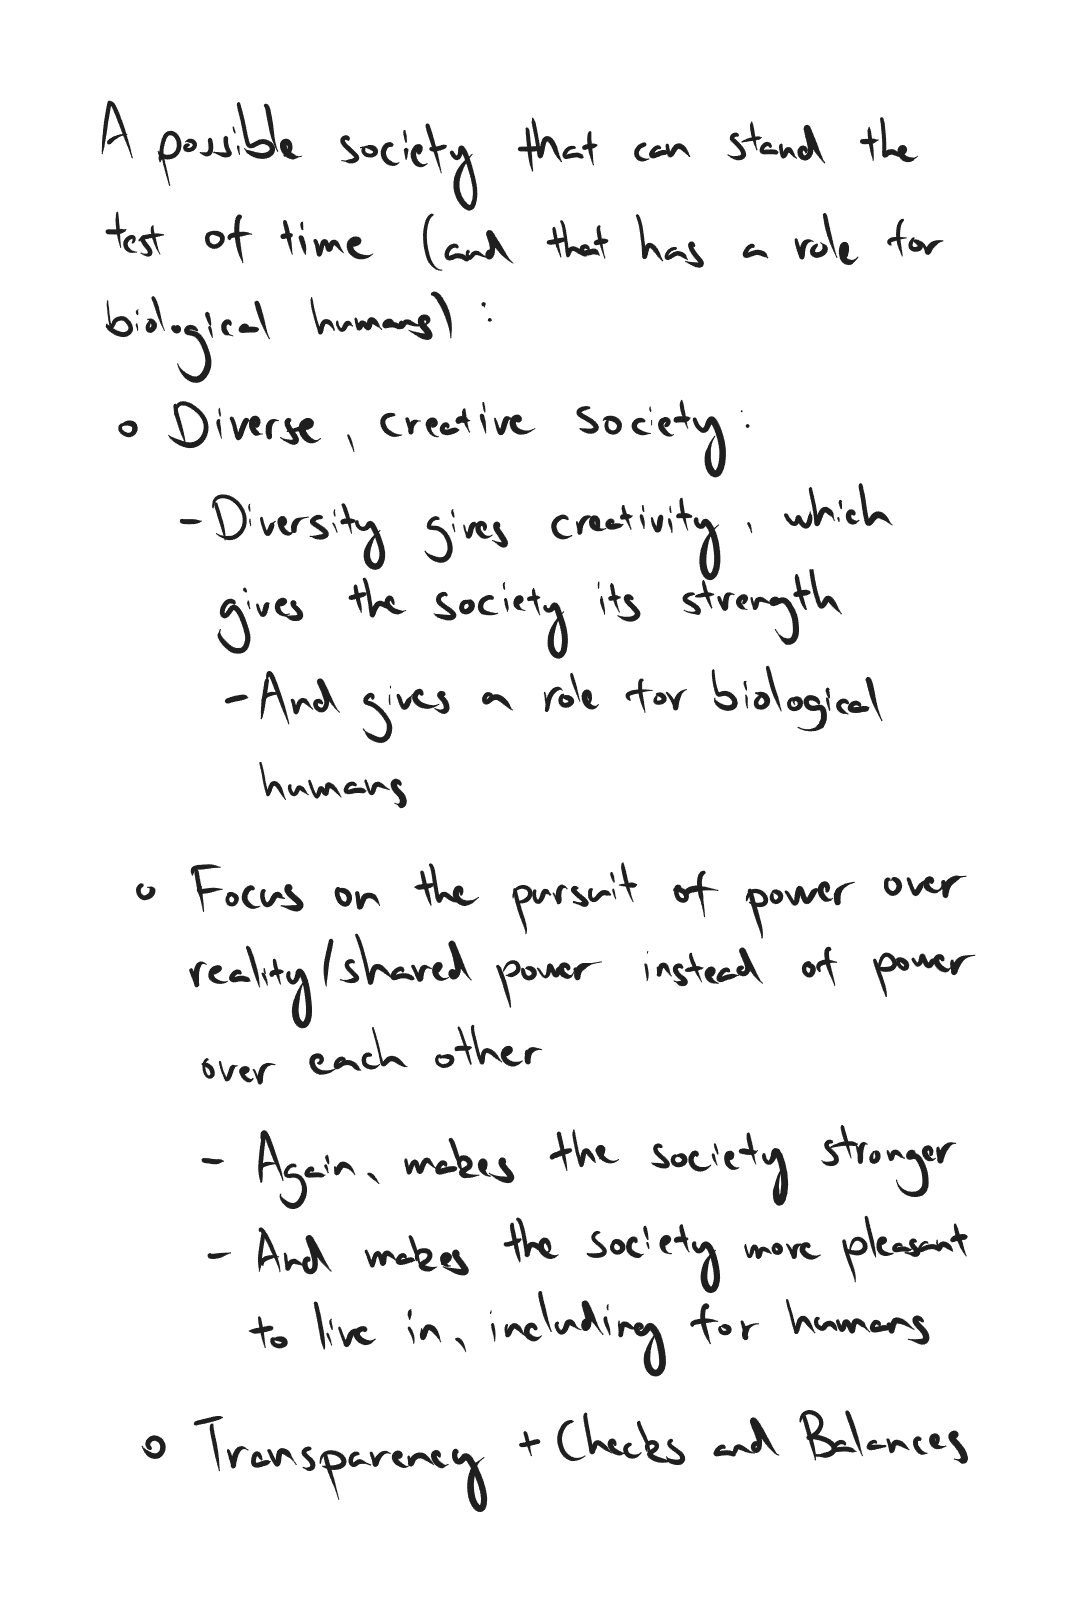 A possible society that can stand the
test of time (and that has a role for
biological humans):
o Diverse, creative society:
- Diversity gives creativity, which
gives the society its strength
- And gives a role for biological
humans
o Focus on the pursuit of power over
reality/shared power instead of power
over each other
- Again, makes the society stronger
- And makes the society more pleasant
to live in, including for humans
o Transparency + Checks and Balances